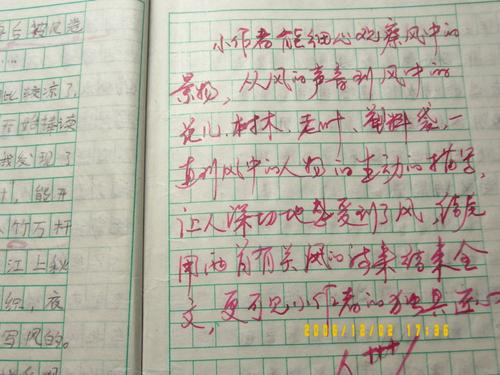 后被风造
比较凉了,
开始捧读
我发现了
,能开
竹万杆
江上秋
织,夜
写风的。
小作者能细心观察风中的
景物,从风的声音到风中的
花儿、树木、走叶、塑料袋,一
直到风中的人物的生动的描写,
让人深切地感受到了风,结尾
用两首有关风的诗来结束全
文,更可见小作者的独具匠心
2008/12/02 17:36